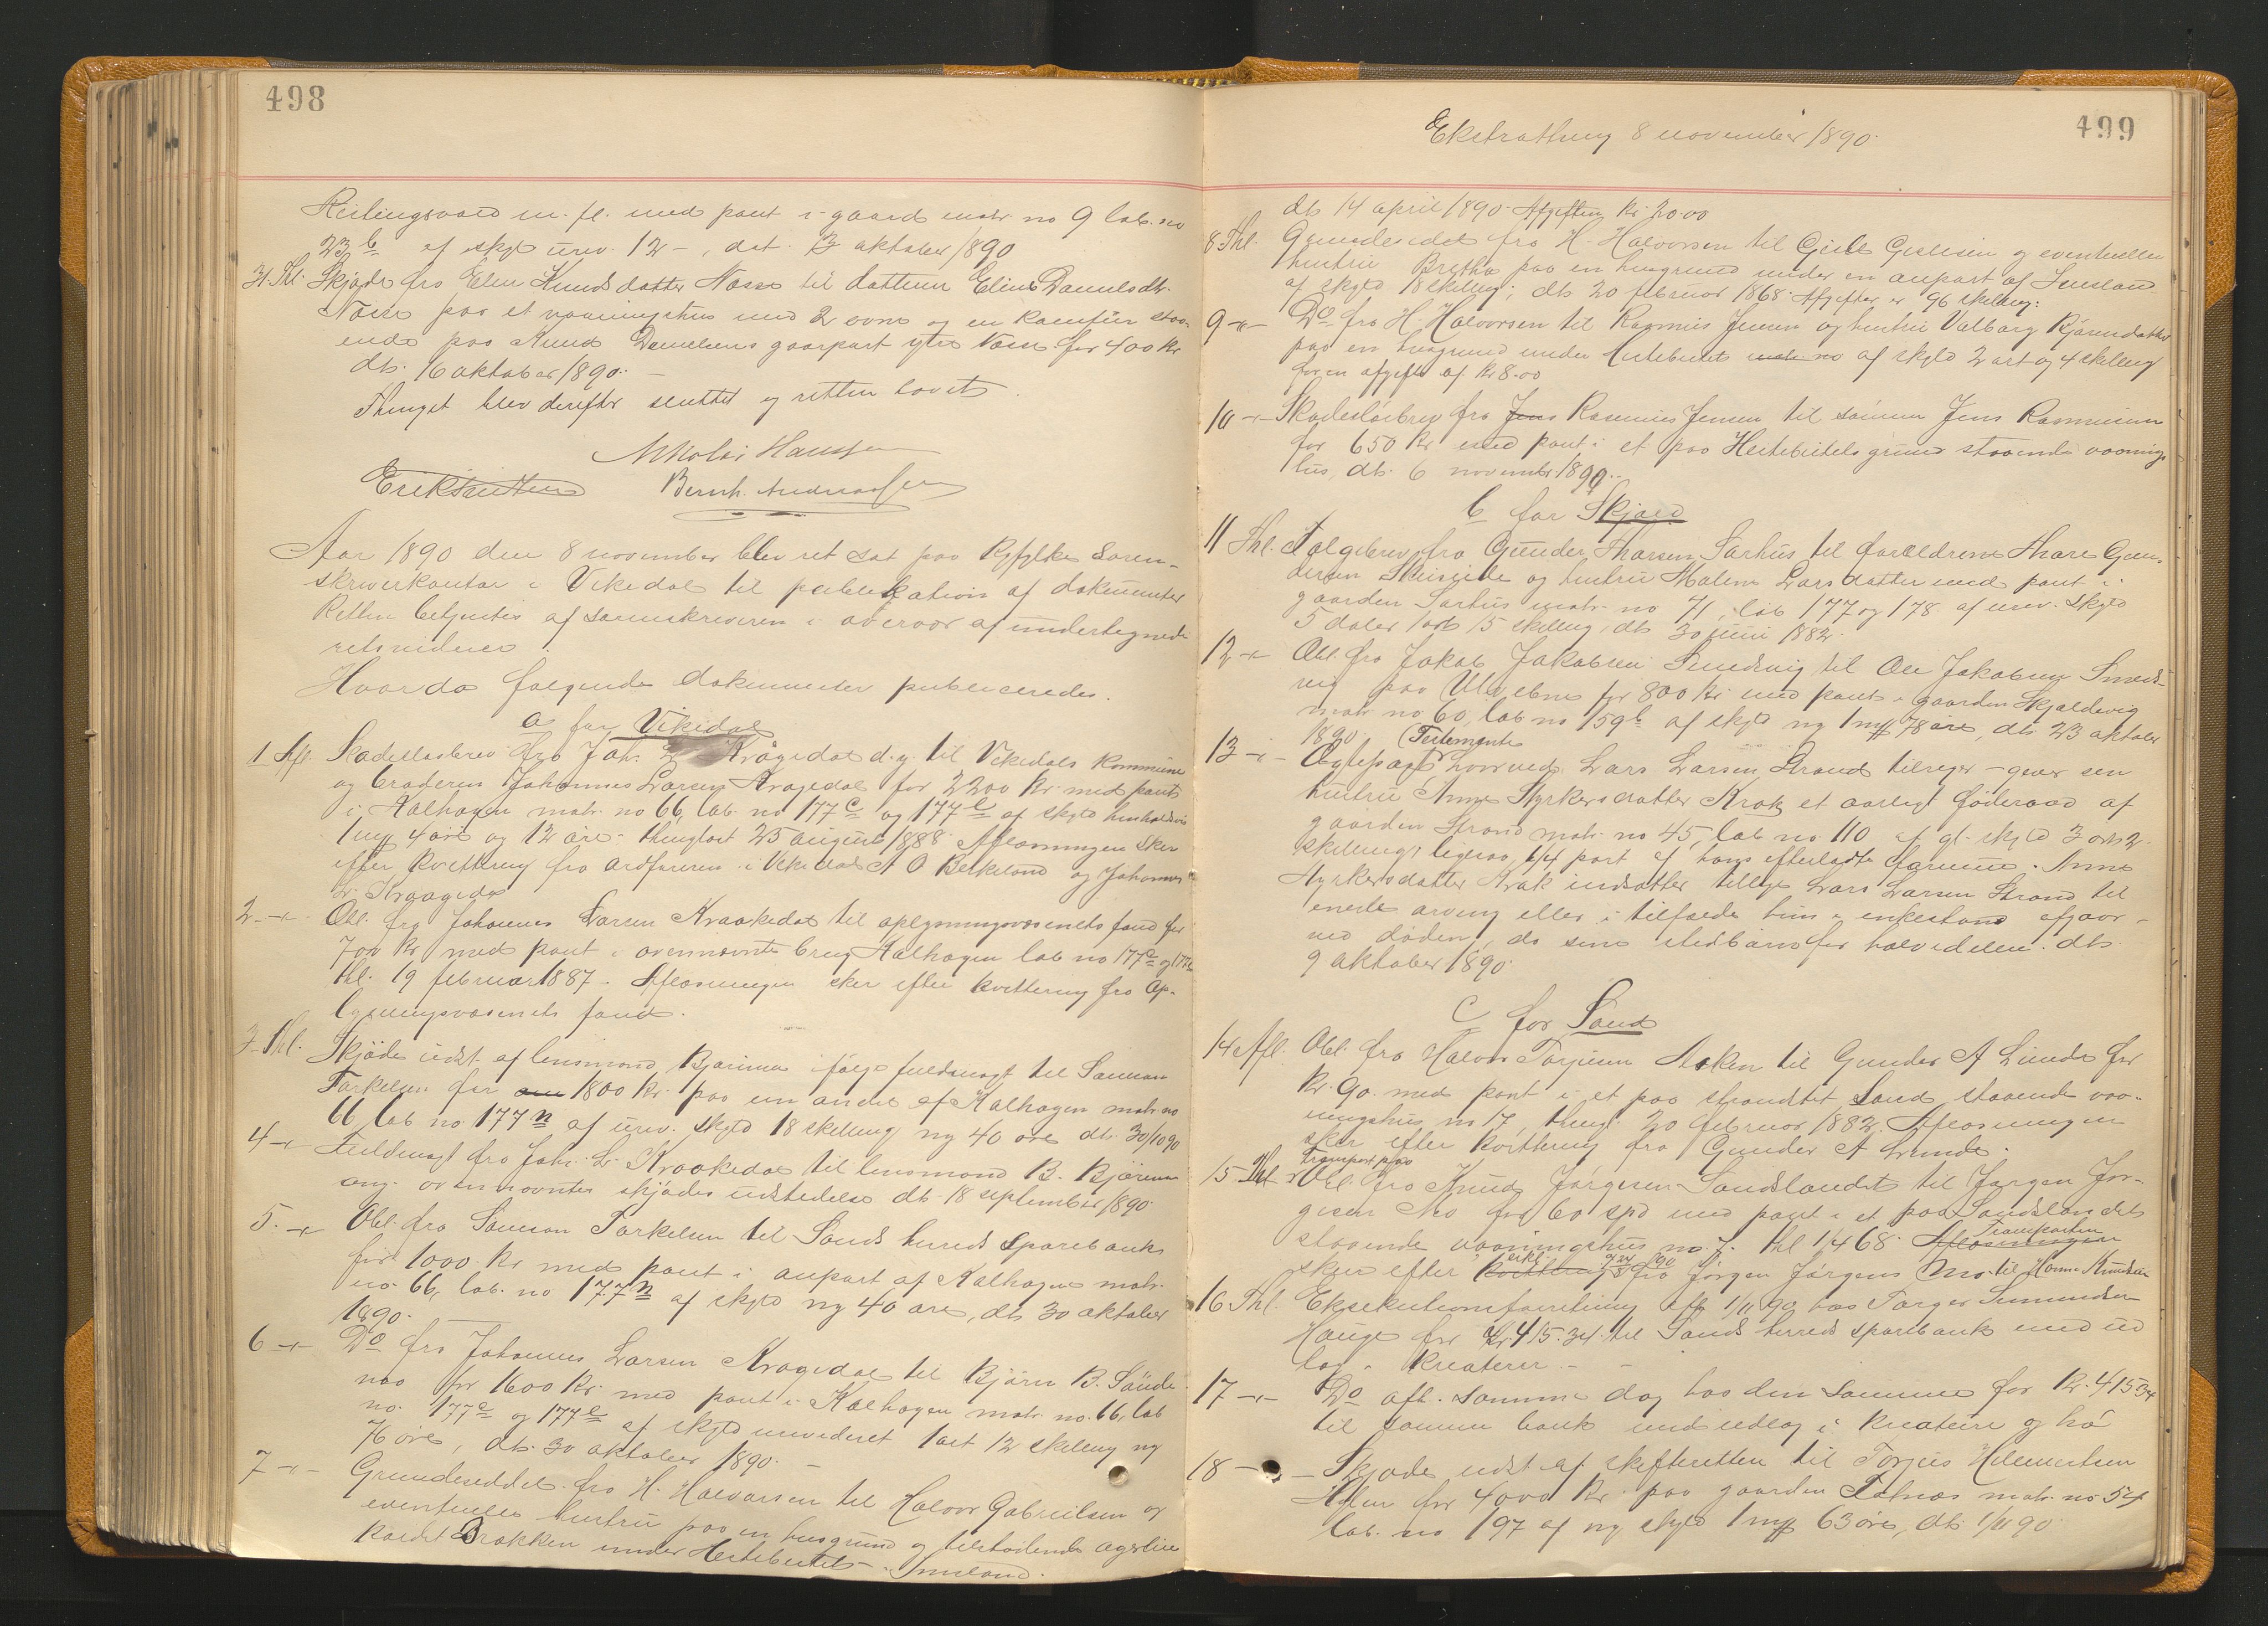 498
m. fl. med pant i gaard matr no 9 lab. no
23 b af skyld urev. 12 –, dat. 13 oktober 1890
31. Thl. Skjøde fra Elen Knudsdatter Næsse til datteren Eline Danielsdtr.
Næsse paa et vaaningshus med 2 ovne og en komfur staa-
ende paa Knud Danielsens gaarpart ytre Næsse for 400 kr
dt. 16 oktober 1890. –
Thinget blev derefter sluttet og retten hævet.
Nikolai Hansen
Bernh. Andreassen
Aar 1890 den 8 november blev ret sat paa Ryfylke Soren-
skriverkontor i Vikedal til publikation af dokumenter
Retten betjentes af sorenskriveren i overvær af undertegnede
retsvidner.
Hvorda følgende dokumenter publiceredes.
a for Vikedal
1 Afl. Skadesløsbrev fra Joh. Krågedal d.y. til Vikedals kommune
og broderen Johannes Larsen Kragedal for 2200 kr med pant
i Aalhagen matr. no 66, lab. no 177 c og 177 l af skyld henholdsvis
1 mrk 4 øre og 12 øre – thinglæst 25 august 1888. Aflæsningen sker
efter kvittering fra ordføreren i Vikedal A O Birkeland og Johannes
L. Kraagedal
2 –"– Obl. fra Johannes Larsen Kraakedal til oplysningsvæsenets fond for
700 kr med pant i ovennævnte brug Aalhagen lab no 177 c og 177 l
thl. 19 februar 1887. Aflæsningen sker efter kvittering fra Op-
lysningsvæsenets fond.
3 Thl. Skjøde udst. af lensmand Bjørnsen ifølge fuldmagt til Samson
Torkelsen for 1800 kr. paa en andel af Aalhagen matr no
66 lab no 177 n af urev. skyld 18 skilling ny 40 øre dt. 30/10 90
4 –"– Fuldmagt fra Joh. L. Kraakedal til lensmand B. Bjørnsen
ang. ovennævnte skjødes udstedelse dt. 18 september 1890.
5. –"– Obl. fra Samson Torkelsen til Sands herreds sparebank
for 1000 kr med pant i anpart af Aalhagen matr.
no 66, lab. no 177 n af skyld ny 40 øre, dt. 30 oktober
1890.
6 –"– Do fra Johannes Larsen Kragedal til Bjørn B. Sande
naa for 1600 kr. med pant i Aalhagen matr. no. 66, lab
no. 177 c og 177 l af skyld urevideret 1 ort 12 skilling ny
76 øre, dt. 30 oktober 1890. –
7 –"– Grundseddel fra H. Halvorsen til Halvor Gabrielsen og
eventuelle hustru paa en husgrund og tilstødende agerline
kaldt Brækken under Hestebeitet – Imsland.
Ekstrathing 8 november 1890.
499
dt. 14 april 1890. Afgiften kr. 20.00
8 Thl. Grundseddel fra H. Halvorsen til Giell Gislesen og eventuelle
hustru Brytha paa en husgrund under en anpart af Imsland
af skyld 18 skilling; dt. 20 februar 1868. Afgiften er 96 skilling.
9 –"– Do. fra H. Halvorsen til Rasmus Jensen og hustru Valborg Bjørnsdatter
paa en husgrund under Hestebeitet matr. no af skyld 2 ort og 4 skilling
for en afgift af kr 8.00
10 –"– Skadesløsbrev fra Jens Rasmus Jensen til sønnen Jens Rasmussen
for 650 kr med pant i et paa Hestebeitets grund staaende vaanings
hus, dt. 6 november 1890.
b for Skjold
11 Thl. Følgebrev fra Gunder Thorsen Sørhus til forældrene Thore Gun-
dersen og hustru Malene Larsdatter med pant i
gaarden Sørhus matr. no 71, lab 177 og 178 af urev. skyld
5 daler 1 ort 15 skilling, dt. 30 juni 1882.
12 –"– Obl. fra Jakob Jakobsen Smedvig til Ole Jakobsen Smed-
vig paa for 800 kr. med pant i gaarden Skjoldevig
matr no 60, lab no 159 b af skyld ny 1 mrk 78 øre, dt. 23 oktober
1890.
13 –"– Testamente hvorved Lars Larsen Strand tilsiger – gaver sin
hustru Anne Styrkersdatter Krak et aarligt føderaad af
gaarden Strand matr. no 45, lab no. 110 af gl. skyld 3 ort 2
skilling, ligesaa 1/4 part af hans efterladte formue. Anne
Styrkersdatter Krak indsætter tillige Lars Larsen Strand til
eneste arving eller i tilfælde hun i enkestand afgaar
ved døden, da sine stedbørn for halvedelen. dt.
9 oktober 1890.
c for Sand
14 Afl. Obl. fra Halvor Torjusen Aaken til Gunder A Lunde for
kr. 90. med pant i et paa strandstedet Sand staaende vaa-
ningshus no 17, thingl. 20 februar 1882. Aflæsningen
sker efter kvittering fra Gunder A Lunde.
15 Thl. Transport paa Obl. fra Knud Jørgesen Sandslandet til Jørgen Jør-
gesen Mo for 60 spd med pant i et paa Sandslandet
staaende vaaningshus no 7. thl 1/4 68. Aflæsningen Transporten
sker efter kvittering fra Jørgen Jørgens Mo til Hanne Knudsen
16 Thl. Eksekutionsforretning aft. 1/11 90 hos Torger Simundsen
Hauge for kr. 415.34 til Sands herreds sparebank med ud
lag i kreaturer. –
17 –"– Do aft. samme dag hos den samme for kr. 415 34
til samme bank med udlæg i kreature og hø
18 –"– Skjøde udst. af skifteretten til Torjus Helmertsen
for 4000 kr. paa gaarden Følnæs matr. no 54
lab. no 197 af ny skyld 1 mrk 63 øre, dt. 1/11 90